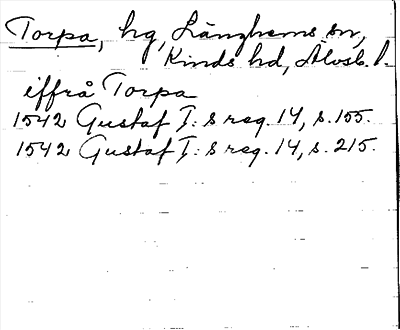 Torpa, hg, Länghems sn,
Kinds hd, Älvsb. l.
iffrå Torpa
1542 Gustaf I:s reg. 14, s. 155.
1542 Gustaf I:s reg. 14, s. 215.